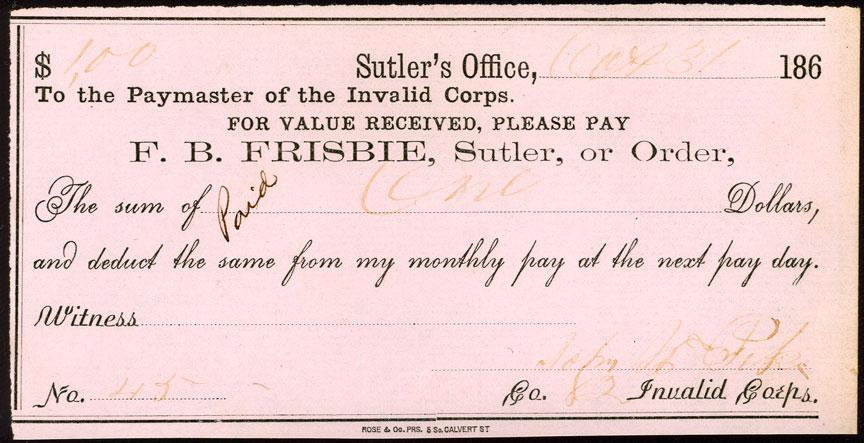 $ 1,00 Sutler's Office, Oct 31 186
To the Paymaster of the Invalid Corps.
FOR VALUE RECEIVED, PLEASE PAY
F. B. FRISBIE, Sutler, or Order,
The sum of Paid One Dollars,
and deduct the same from my monthly pay at the next pay day.
Witness
No. 45 Co. Invalid Corps.
ROSE & Co. PRS. 5 So. CALVERT ST